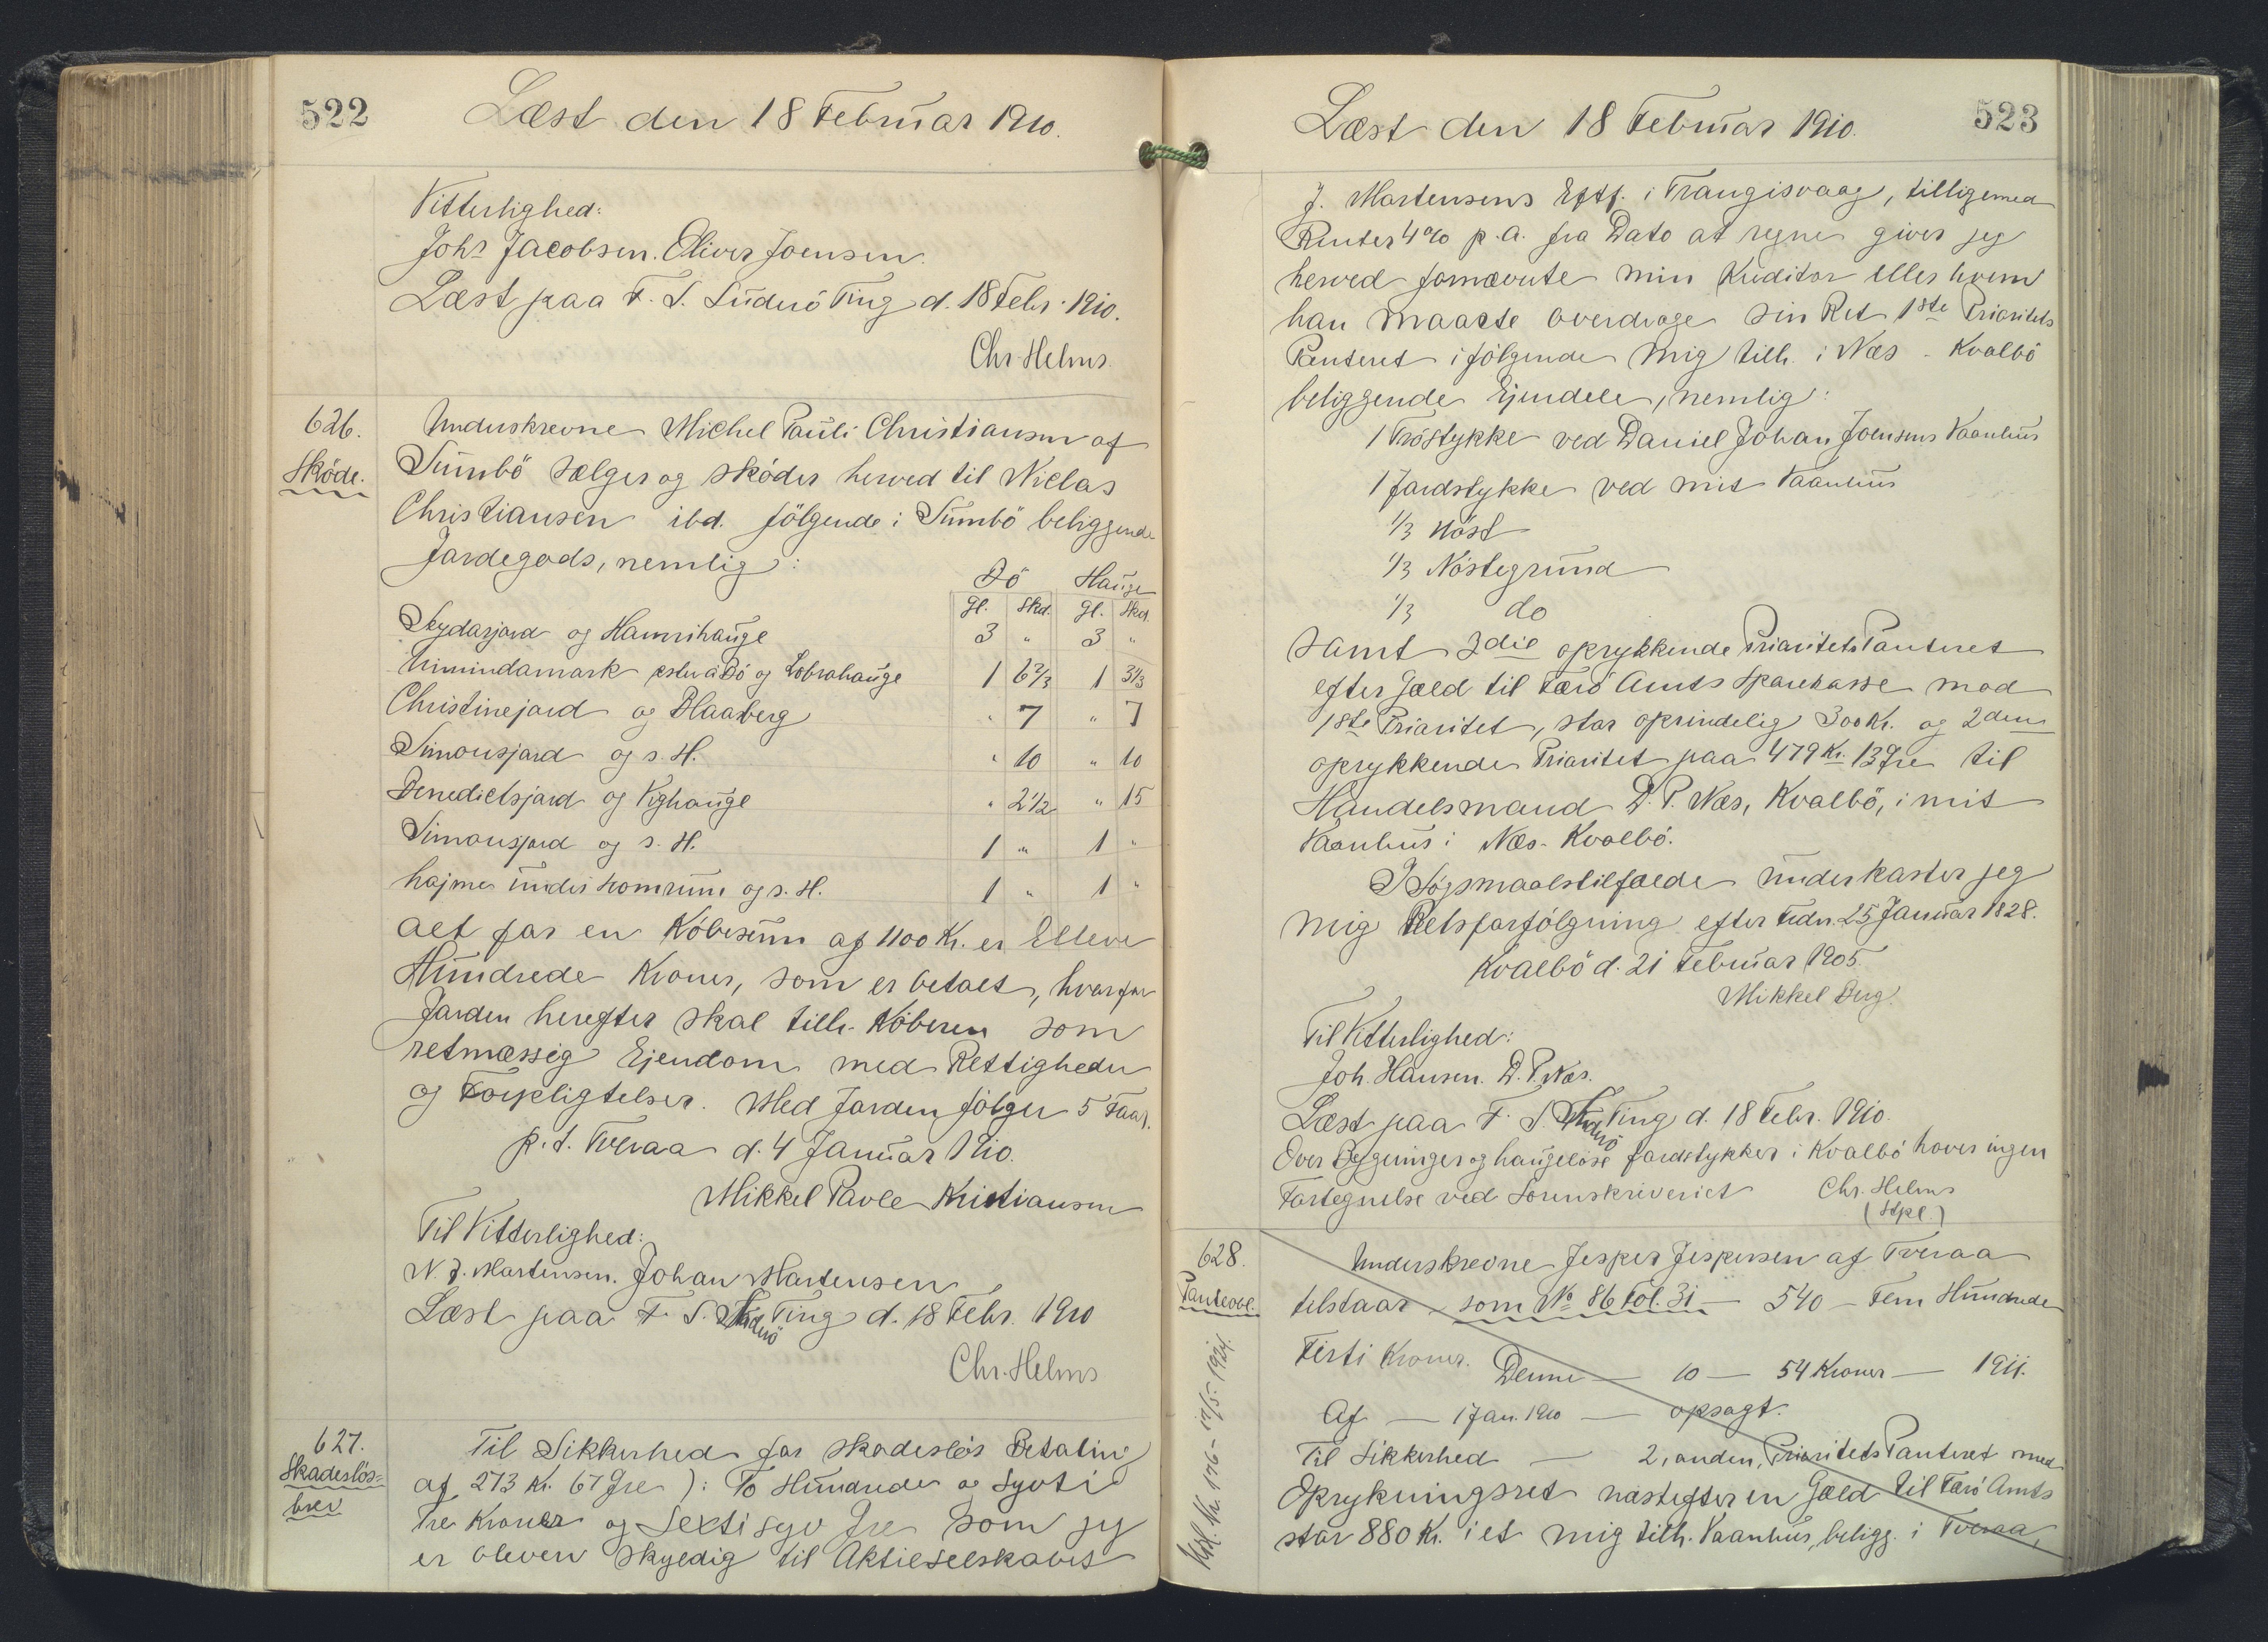 522
Læst den 18 Februar 1910.
Vitterlighed:
Johs Jacobsen. Oliver Joensen.
Læst paa F. S. Suderö Ting d. 18 Febr. 1910.
Chr. Helms.
626.
Sköde.
Underskrevne Michel Pauli Christiansen af
Sumbö sælger og sköder herved til Niclas
Christiansen ibd. fölgende i Sumbö beliggende
Jordegods, nemlig:
Bö Hauge
Gl. Skd. Gl. Skd.
Skydarjord og Hamrihauge 3 " 3 "
Uimindamark östu á Bö og Lobrahauge 1 6 2/3 1 3 1/3
Christinejord og Blaaberg " 7 " 7
Simonsjord og s. H. " 10 " 10
Benedictsjord og Kyhauge " 2 1/2 " 15
Simonsjord og s. H. 1 " 1 "
hajme under homrum og s. H. 1 " 1 "
alt for en Köbesum af 1100 Kr. er Elleve
Hundrede Kroner, som er betalt, hvorfor
Jorden herefter skal tilh. Köberen som
retmæssig Ejendom med Rettigheder
og Forpligtelser. Med Jorden fölger 5 Faar.
p. t. Tveraa d. 4 Januar 1910.
Mikkel Pavle Kristiansen
Til Vitterlighed:
N. J. Mortensen. Johan Mortensen
Læst paa F. S. Suderö Ting d. 18 Febr. 1910
Chr. Helms
627.
Skadeslös=
brev
Til Sikkerhed for skadeslös Betaling
af 273 Kr. 67 Øre ): To Hundrede og Syvti
Tre Kroner og Sextisyv Øre som jeg
er bleven skyldig til Aktieselskabet
523
Læst den 18 Februar 1910.
J. Mortensens Eftf. i Trangisvaag, tilligemed
Renter 4% p.a. fra Dato at regne giver jeg
herved fornævnte min Kreditor eller hvem
han maatte overdrage sin Ret 1ste Prioritets
Panteret i fölgende mig tilh. i Næs - Kvalbö
beliggende Ejendele, nemlig:
1 Tröstykke ved Daniel Johan Joensens Vaanhus
1 Jordstykke ved mit Vaanhus
1/3 Nöst
1/3 Nöstegrund
1/3 do
samt 3die oprykkende Prioritets Panteret
efter Gæld til Færö Amts Sparekasse mod
1ste Prioritet, stor oprindelig 300 Kr. og 2den
oprykkende Prioritet paa 479 Kr. 13 Øre til
Handelsmand D. P. Næs, Kvalbö, i mit
Vaanhus i Næs - Kvalbö.
I Sögsmaalstilfælde underkaster jeg
mig Retsforfölgning efter Fdn. 25 Januar 1828.
Kvalbö d. 21 Februar 1905
Mikkel Berg.
Til Vitterlighed:
Joh. Hansen. D. P. Næs.
Læst paa F. S. Suderö Ting d. 18 Febr. 1910.
Over Bygninger og haugelöse Jordstykker i Kvalbö haves ingen
Fortegnelse ved Sorenskriveriet Chr. Helms
(Stpl.)
628.
Panteobl.
Underskrevne Jesper Jespersen af Tveraa
tilstaar som No 86 Fol. 31 — 540 — Fem Hundrede
Firti Kroner. Denne — 10 — 54 Kroner — 1911.
Af — 1 Jan. 1910 — opsagt.
Til Sikkerhed — 2, anden, Prioritets Panteret med
Oprykningsret næstefter en Gæld til Færö Amts
stor 880 Kr. i et mig tilh. Vaanhus, beligg. i Tveraa,
Udl. No. 176 - 12/5 1924.